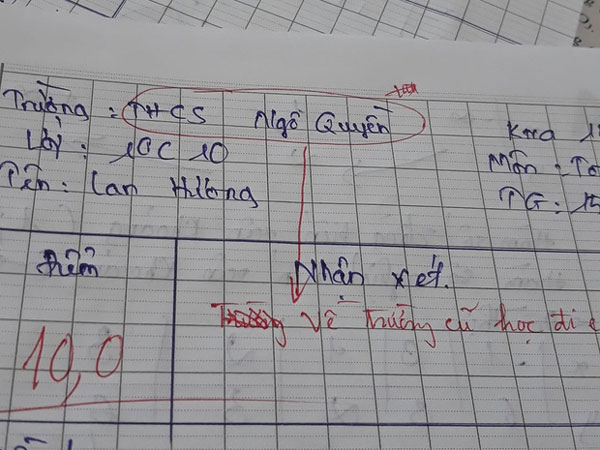 Trường : THCS Ngô Quyền
Lớp : 10C10
Tên : Lan Hương
Ktra 1
Môn : To
TG : 15
Điểm
Nhận xét.
10,0
Về trường cũ học đi e